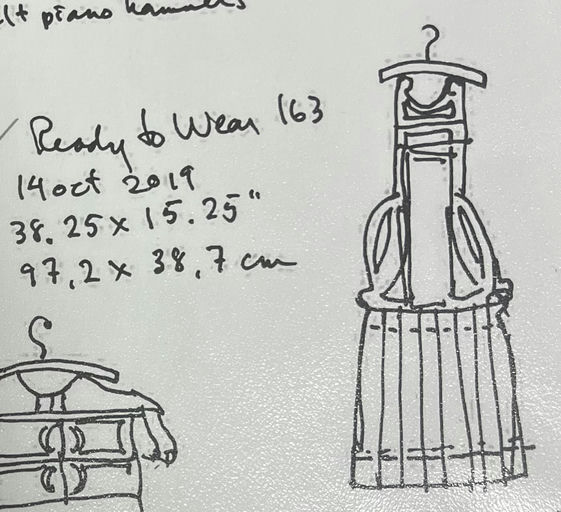 piano hammers
Ready to Wear 163
14 oct 2019
38.25 x 15.25"
97,2 x 38,7 cm